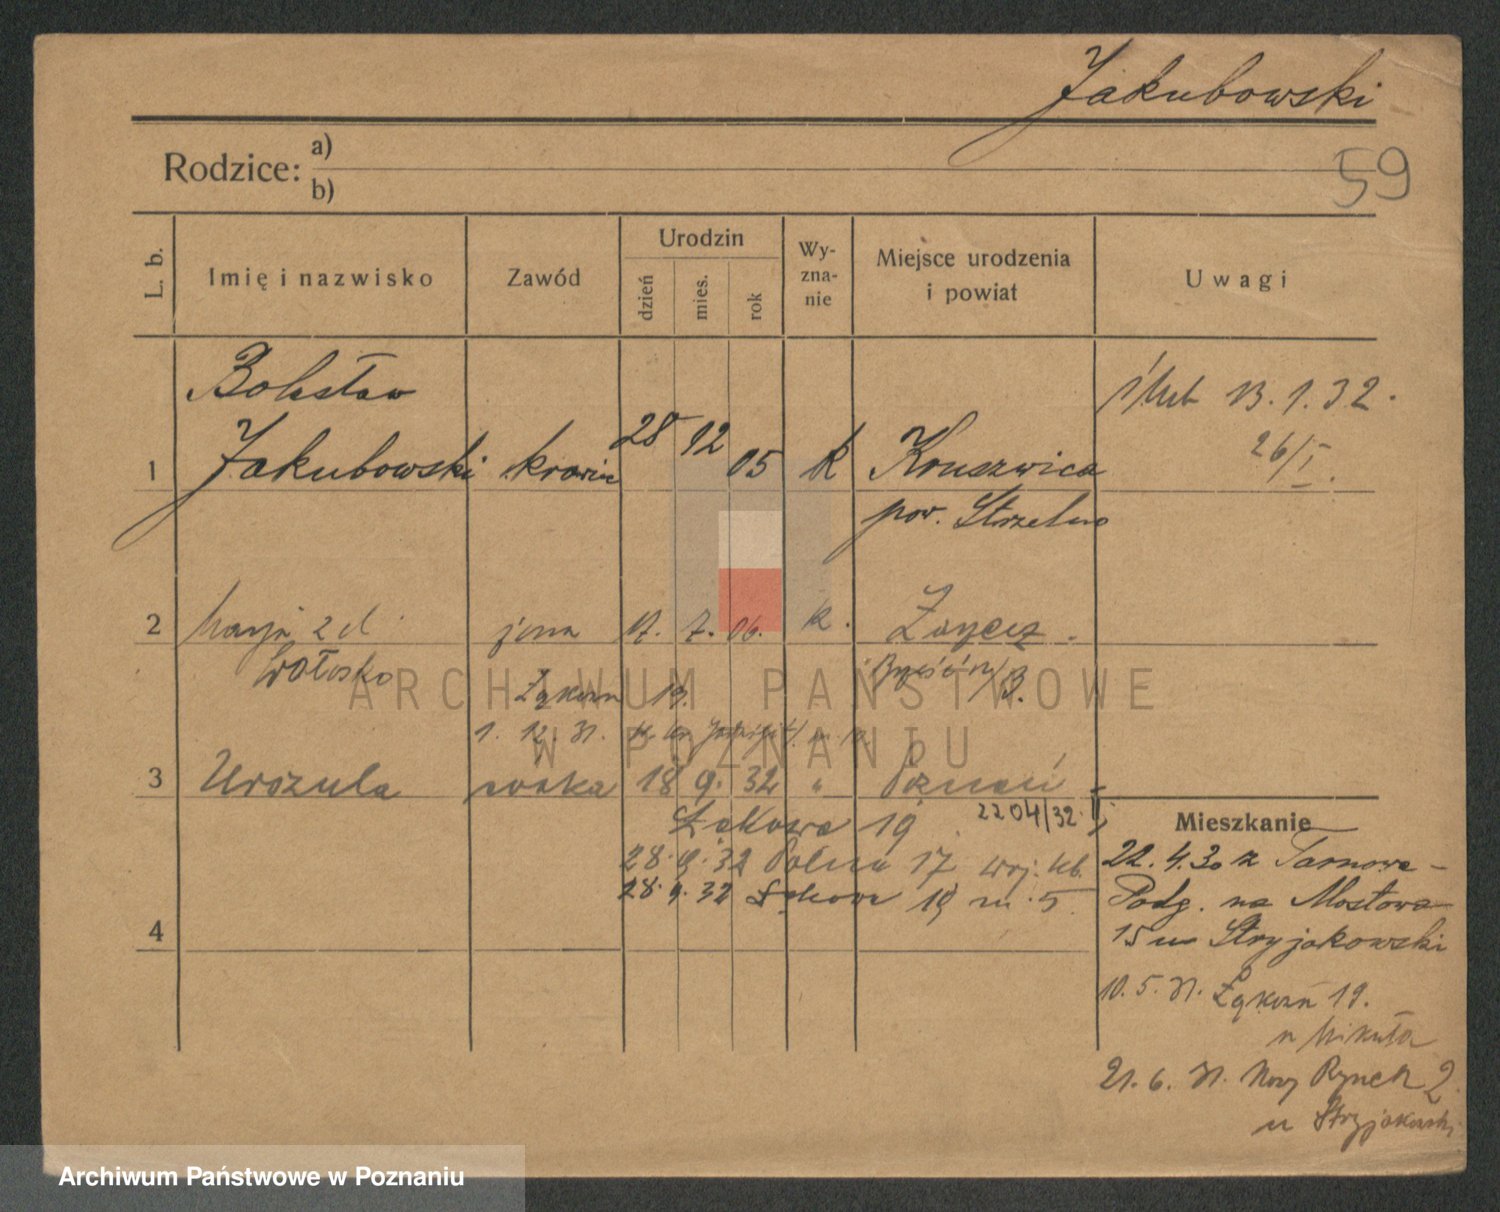 Jakubowski
59
Rodzice: a)
b)
L. b.
Imię i nazwisko
Zawód
Urodzin
dzień
mies.
rok
Wy-
zna-
nie
Miejsce urodzenia
i powiat
Uwagi
Bolesław
ślub 13.1.32.
26/I.
1 Jakubowski krawiec 28 12 05 k Kruszwica
pow. Strzelno
2 Marja z d. żona 17. 7. 06. k.
Wołosko
19.
1. 12. 31.
3 Urszula córka 18 9. 32 " Poznań
Łąkowa 19 2204/32
28.9.32 Polna 17
28.9.32 Łąkowa 19 m. 5.
4
Mieszkanie
22.4.30 z Tarnowa-
Podg. na Mostowa
15 u Stryjakowski
10.5.31. 19.
u Mikuła
21.6.31. Nowy Rynek 2
u Stryjakowski
ARCHIWUM PAŃSTWOWE
W POZNANIU
Archiwum Państwowe w Poznaniu